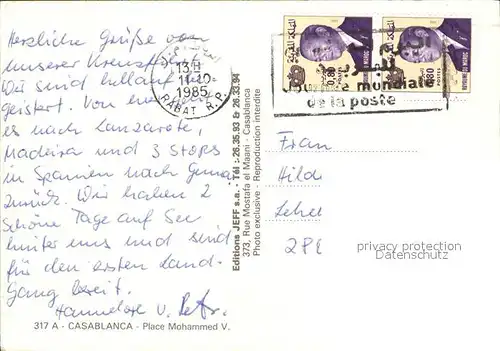 Herzliche Grüße von
unserer Kreuzfahrt
Wir sind hellauf be-
geistert. Von
es nach Lanzarote,
Madeira und 3 Stops
in Spanien nach Genua
zurück. Wir haben 2
schöne Tage auf See
hinter uns und sind
für den ersten Land-
Gang bereit.
Hannelore u.
317 A - CASABLANCA - Place Mohammed V.
Editions JEFF s.a. - Tél : 26.35.93 & 26.33.94
373, Rue Mostafa el Maani - Casablanca
Photo exclusive - Reproduction interdite
13H
11-10-
1985
RABAT R.P.
mondiale
de la poste
0.80
POSTES
0.80
POSTES
Frau
Hilde
Lehel
privacy protection
Datenschutz